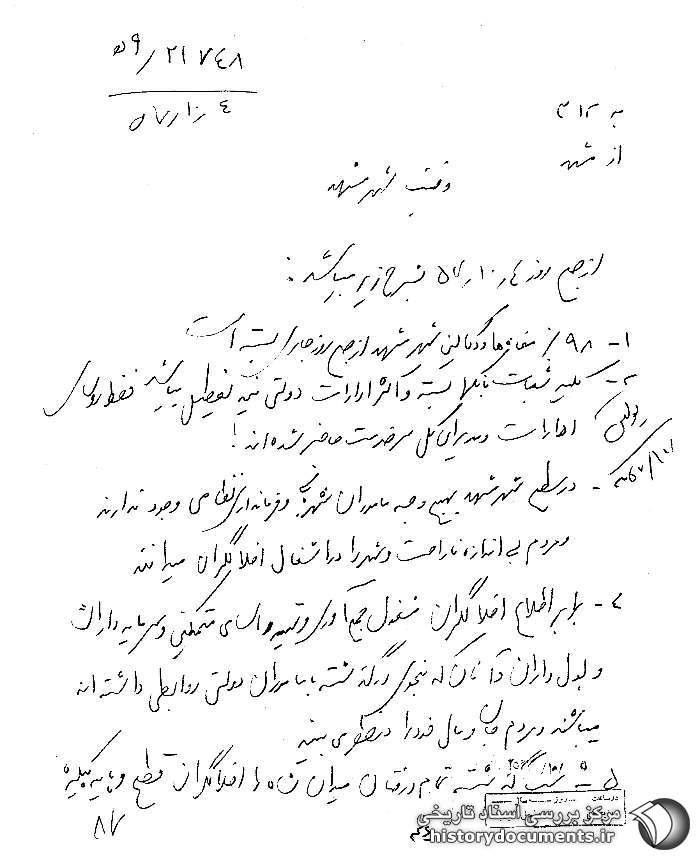 ۵۹/۲۱۷۴۸
به ۳۱۲
از مشهد
وضعیت شهر مشهد
از صبح روز ۴ر۱۰ر۵۷ بشرح زیر میباشد :
۱- ۹۸٪ مغازه‌ها و دکاکین شهر مشهد از صبح روز جاری بسته است
۲- کلیه شعبات بانکها بسته و اکثر ادارات دولتی نیمه تعطیل میباشد فقط روسای
ادارات و مدیران کل سر خدمت حاضر شده‌اند !
۳- در سطح شهر مشهد بهیچ وجه مامورین شهربانی و فرمانداری نظامی وجود ندارند
و مردم بی اندازه ناراحت و شهر را در اشغال اخلالگران میدانند
۴- برابر اطلاع اخلالگران مشغول جمع‌آوری و تهیه اسامی متمکنین و سرمایه داران
و پول داران و آنان که بنحوی در گذشته با مامورین دولتی روابطی داشته اند
میباشند و مردم جان و مال خود را در خطر می بینند
۵- شب گذشته تمام درختان میدان شاه را اخلالگران قطع و پایه کلیه
۸۷
مرکز بررسی اسناد تاریخی
historydocuments.ir